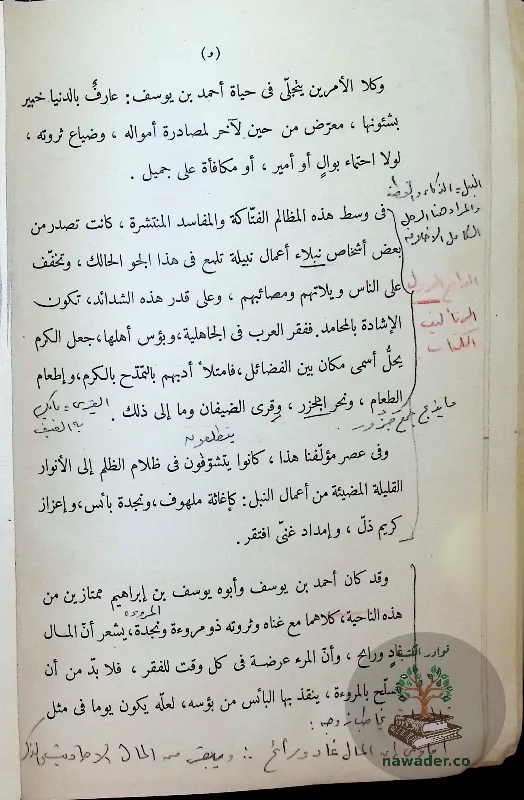 (و)
وكلا الأمرين يتجلّى فى حياة أحمد بن يوسف: عارفٌ بالدنيا خبير
بشئونها ، معرّض من حين لآخر لمصادرة أمواله ، وضياع ثروته ،
لولا احتماء بوالٍ أو أمير ، أو مكافأة على جميل .
النبل = الذكاء و
والمراد هنا الرجل
الكامل الأخلاق
فى وسط هذه المظالم الفتّاكة والمفاسد المنتشرة ، كانت تصدر من
بعض أشخاص نبلاء أعمال نبيلة تلمع فى هذا الجو الحالك ، وتخفّف
على الناس ويلاتهم ومصائبهم ، وعلى قدر هذه الشدائد، تكون
الإشادة بالمحامد. ففقر العرب فى الجاهلية، وبؤس أهلها، جعل الكرم
يحلُّ أسمى مكان بين الفضائل، فامتلأ أدبهم بالتمدّح بالكرم، وإطعام
الطعام ، ونحر الجزر ، وقرى الضيفان وما إلى ذلك .
القرى =
به الضيف
ما يذبح جمع جزور
يتطلعون
وفى عصر مؤلّفنا هذا ، كانوا يتشوّفون فى ظلام الظلم إلى الأنوار
القليلة المضيئة من أعمال النبل: كإغاثة ملهوف، ونجدة بائس، وإعزاز
كريم ذلّ ، وإمداد غنىّ افتقر .
وقد كان أحمد بن يوسف وأبوه يوسف بن إبراهيم ممتازين من
المروءة
هذه الناحية، كلاهما مع غناه وثروته ذو مروءة ونجدة، يشعر أنّ المال
غادٍ ورائح ، وأنّ المرء عرضة فى كل وقت للفقر ، فلا بدّ من أن
يتسلّح بالمروءة ، ينقذ بها البائس من بؤسه، لعلّه يكون يوما فى مثل
إن المال غاد ورائح ∴ ويبقى من المال الأحاديث والذكر
نوادر الكتب
nawader.co